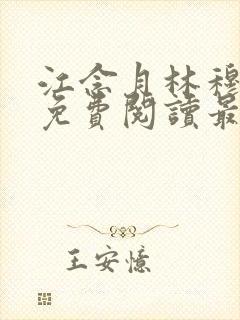 江念月林穆
免費閱讀最
王安憶